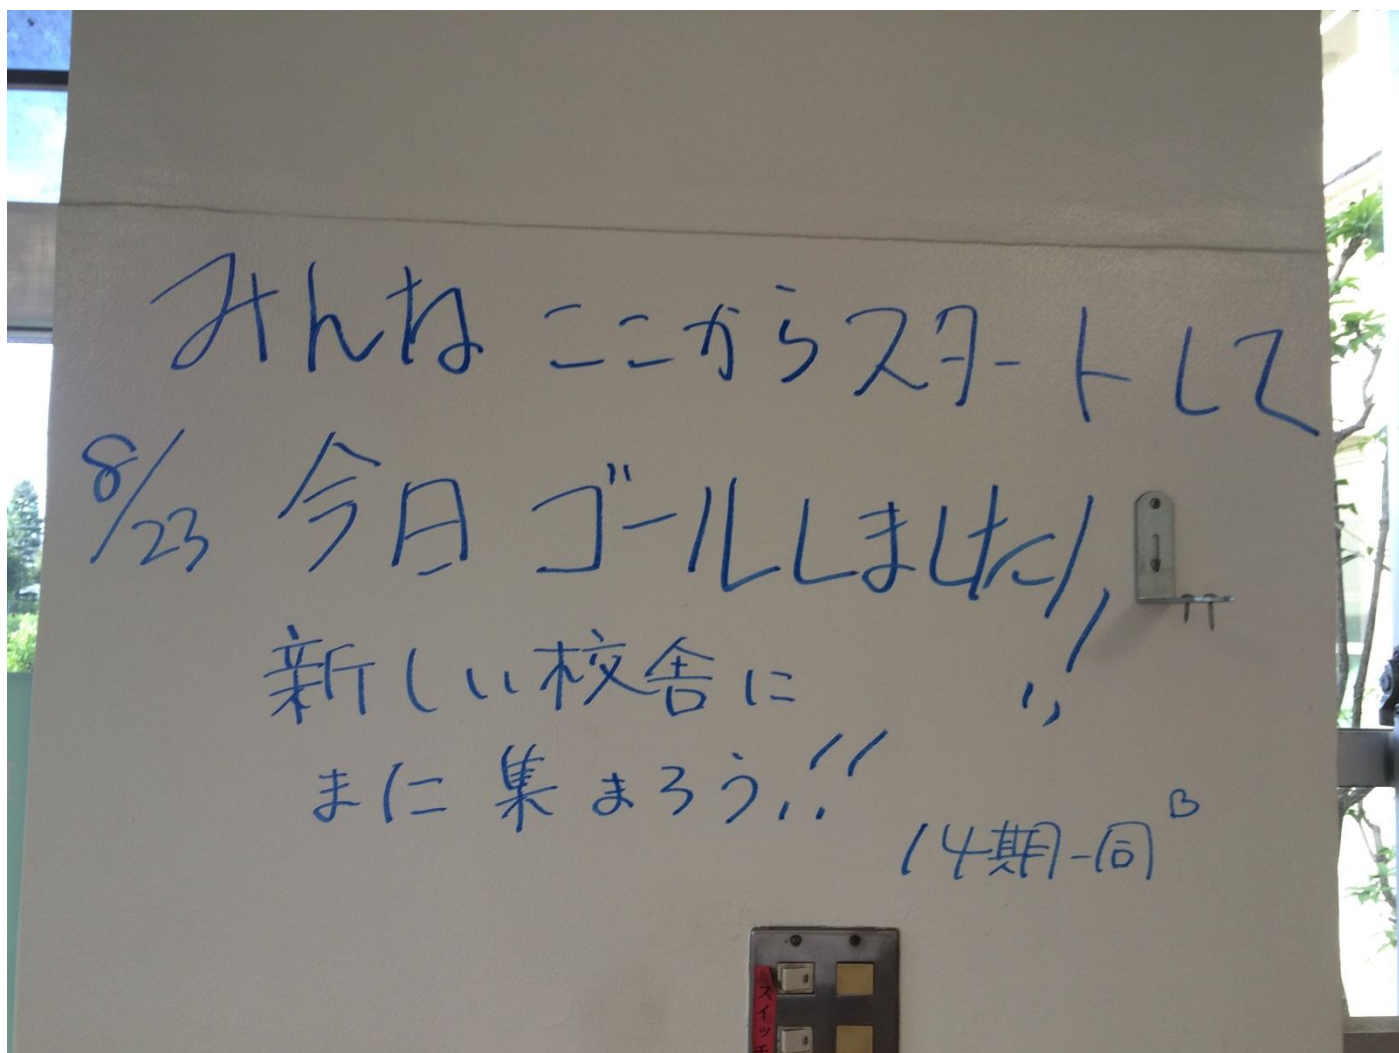 みんな ここからスタートして
8/23 今日 ゴールしました!!
新しい校舎に
また 集まろう!!
14期一同
スイッチ